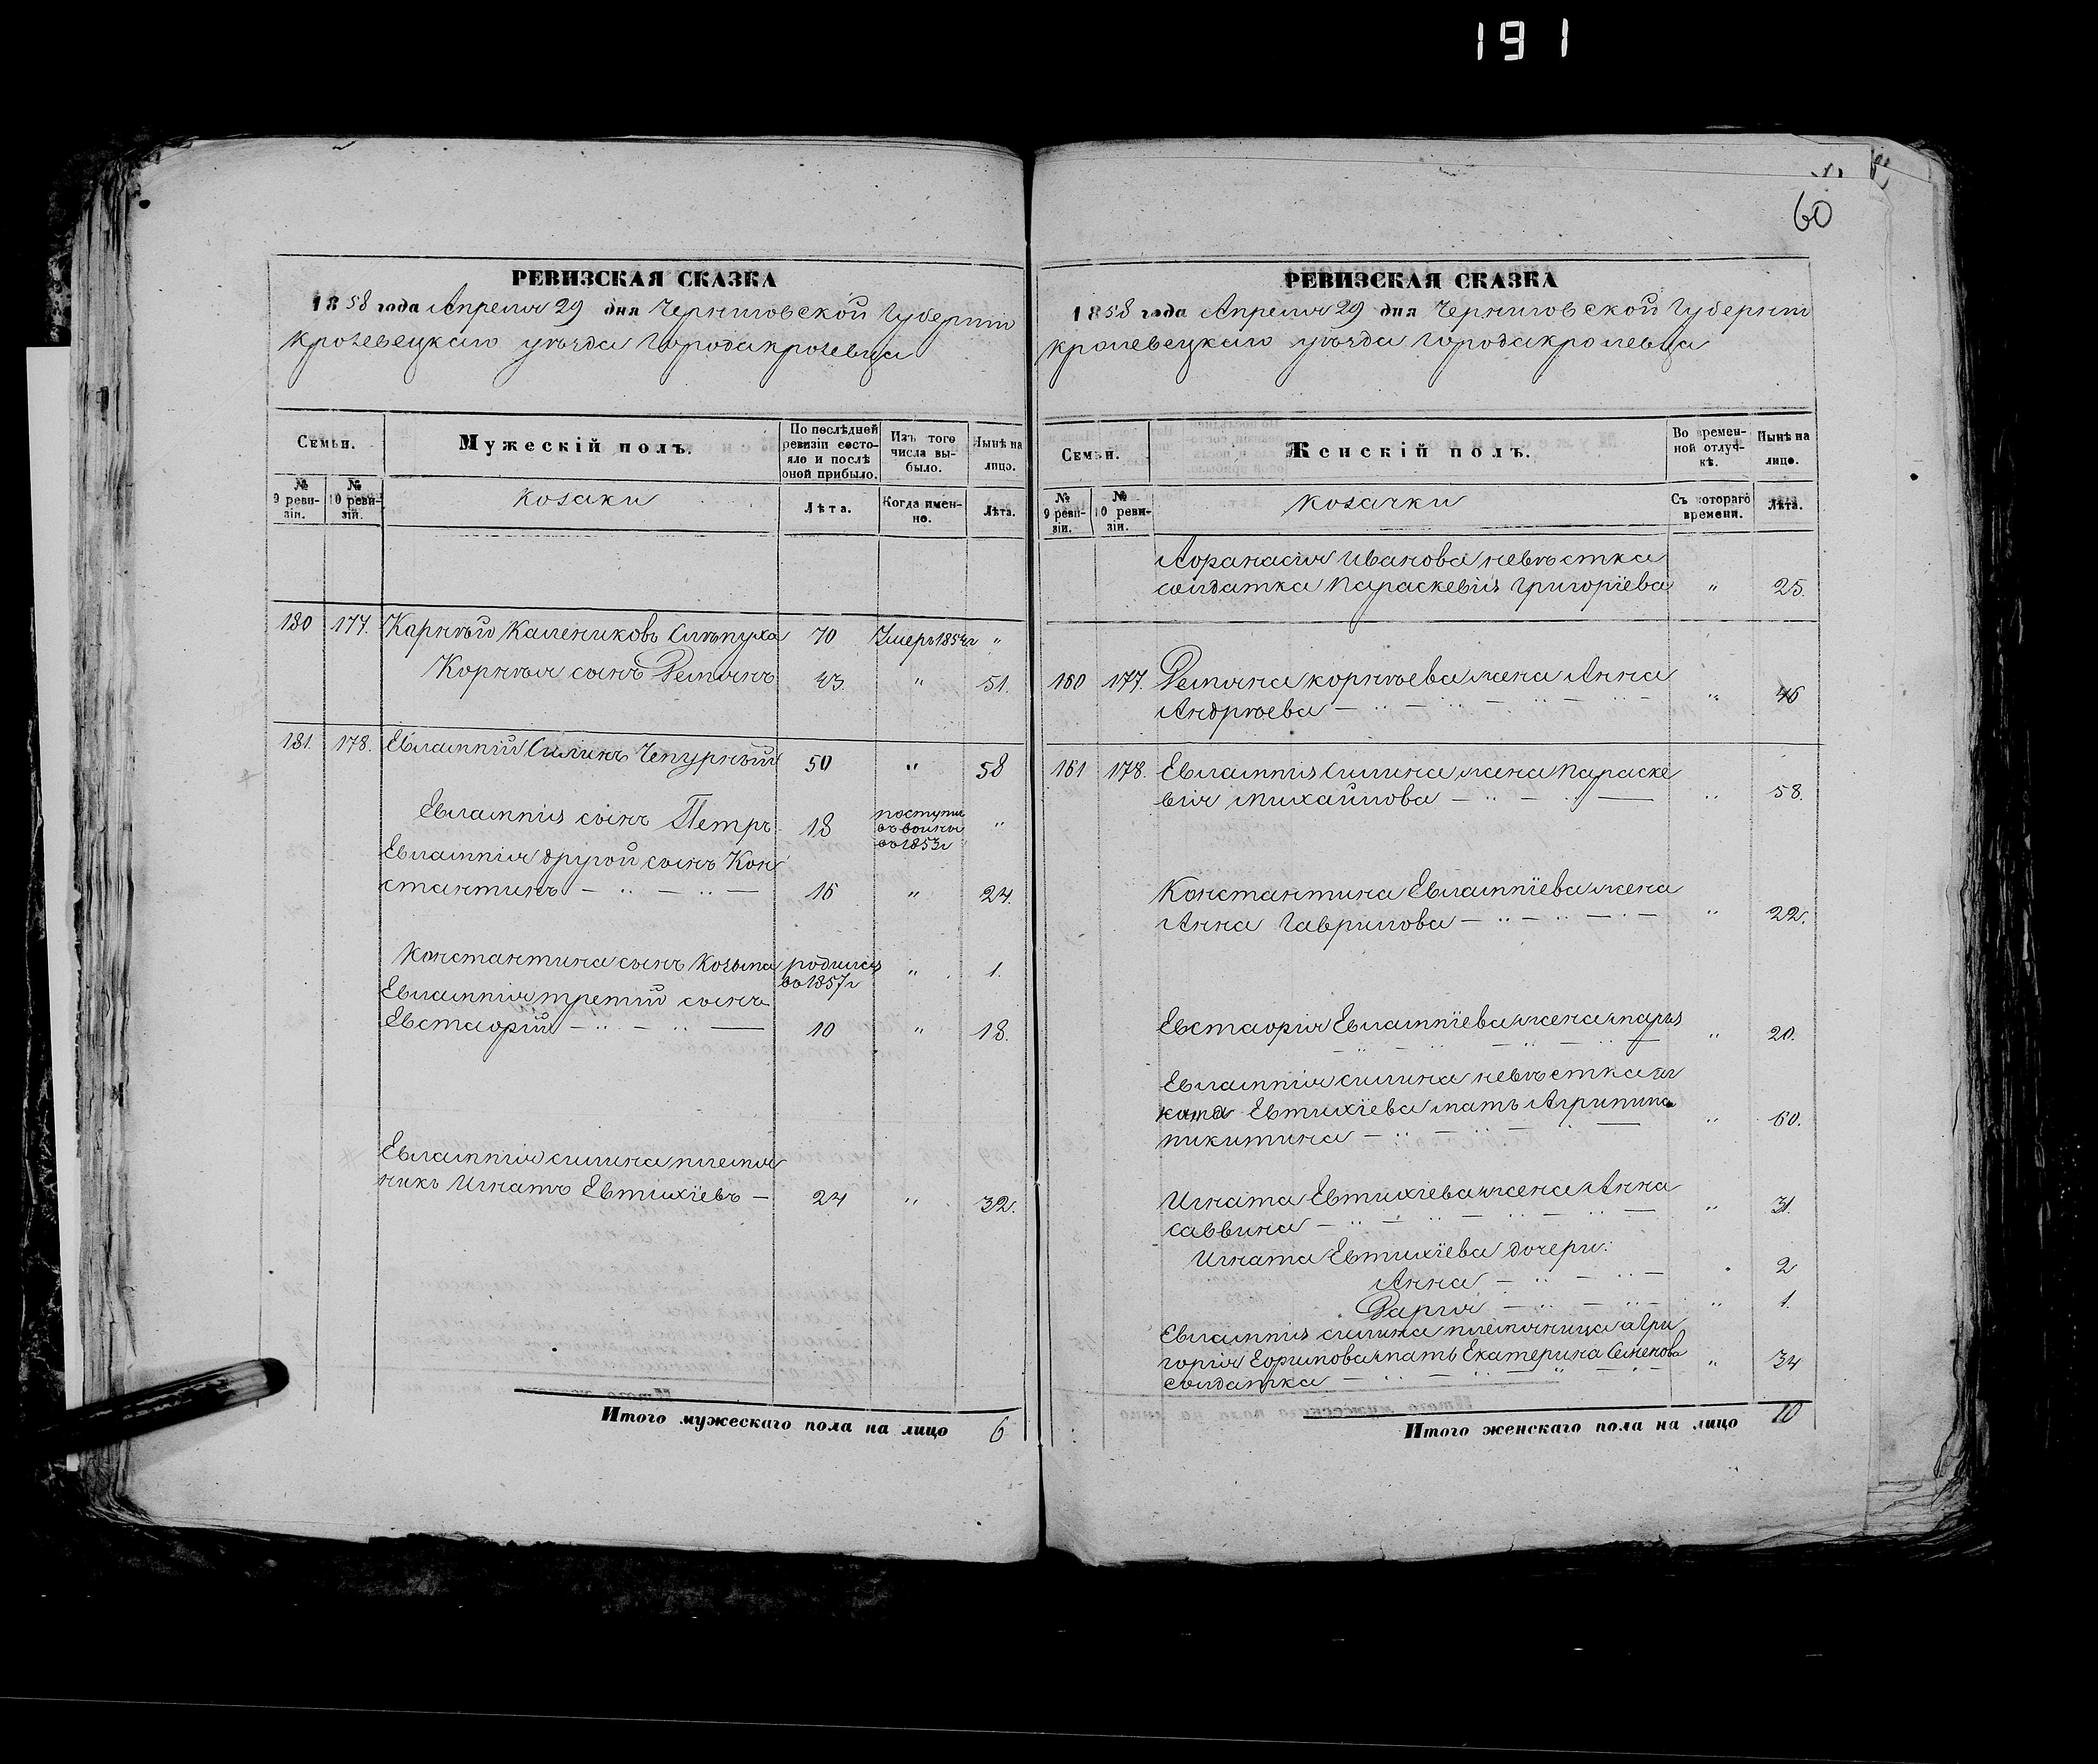 191
60
РЕВИЗСКАЯ СКАЗКА
1858 года Апреля 29 дня Черниговской Губернiи
кролевецкаго уѣзда города кролевца
Семьи.
Мужескій полъ.
По послѣдней ревизіи состояло и послѣ оной прибыло.
Изъ того числа выбыло.
Нынѣ на лицо.
№ 9 ревизіи.
№ 10 ревизіи.
Козаки
Лѣта.
Когда именно.
Лѣта.
180 177. Карнѣй Калениковъ 70 Умеръ 1854 г "
Корнѣя сынъ Демянъ 43. " 51.
181. 178. Евлампій Силинъ Чепурный 50 " 58
Евлампія сынъ Петръ 18 поступил въ воины въ 1853 г "
Евлампія другой сынъ Кон
стантинъ — " — " — 16 " 24.
Константина сынъ Козьма родился въ 1857 г " 1.
Евлампія третій сынъ
Евстафій — " — " — 10 " 18.
Евлампія силина племя
никъ Игнатъ Евтихіевъ — 24 " 32.
Итого мужескаго пола на лицо 6
РЕВИЗСКАЯ СКАЗКА
1858 года Апреля 29 дня Черниговской Губерніи
кролевецкаго уѣзда города кролевца
Семьи.
Женскій полъ.
Во временной отлучкѣ.
Нынѣ на лицо.
№ 9 ревизіи.
№ 10 ревизіи.
Козачки
Съ котораго времени.
Лѣта.
Афанасія Иванова невѣстка
солдатка Параскевія Григоріева " 25.
160 177. Демяна корнѣева жена Анна
Андрѣева — " — " — " — " 46
161 178. Евлампія Силина жена Параске
вія Михайлова — " — " — " 58.
Константина Евлампіева жена
Анна Гаврилова — " — " — " 22.
Евстафія Евлампіева жена марья " 20.
Евлампія силина невѣстка а иг
ната Евтихіева мать Агрипина
никитина — " — " — " 60.
Игната Евтихіева жена Анна
саввина — " — " — " — " 31.
Игната Евтихіева дочери:
Анна — " — " — " 2
Дарія — " — " — " 1.
Евлампія силина племяница а Гри
горія Ефимова мать Екатерина Семенова " 34
солдатка — " — " — " —
Итого женскаго пола на лицо 10